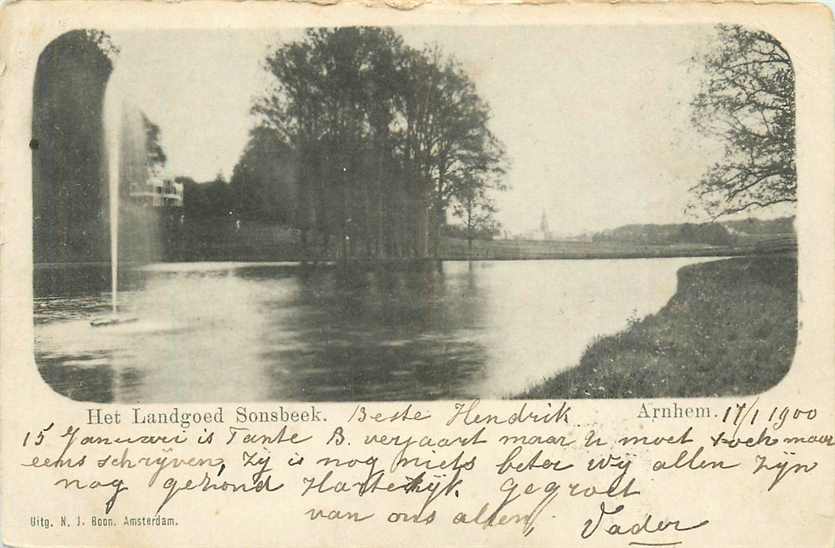 Het Landgoed Sonsbeek. Beste Hendrik Arnhem. 17/1 1900
15 Januari is Tante B. verjaart maar u moet toch maar
eens schrijven, zij is nog niets beter wij allen zijn
nog gezond Hartelijk gegroet
van ons allen,
Vader
Uitg. N. J. Boon. Amsterdam.